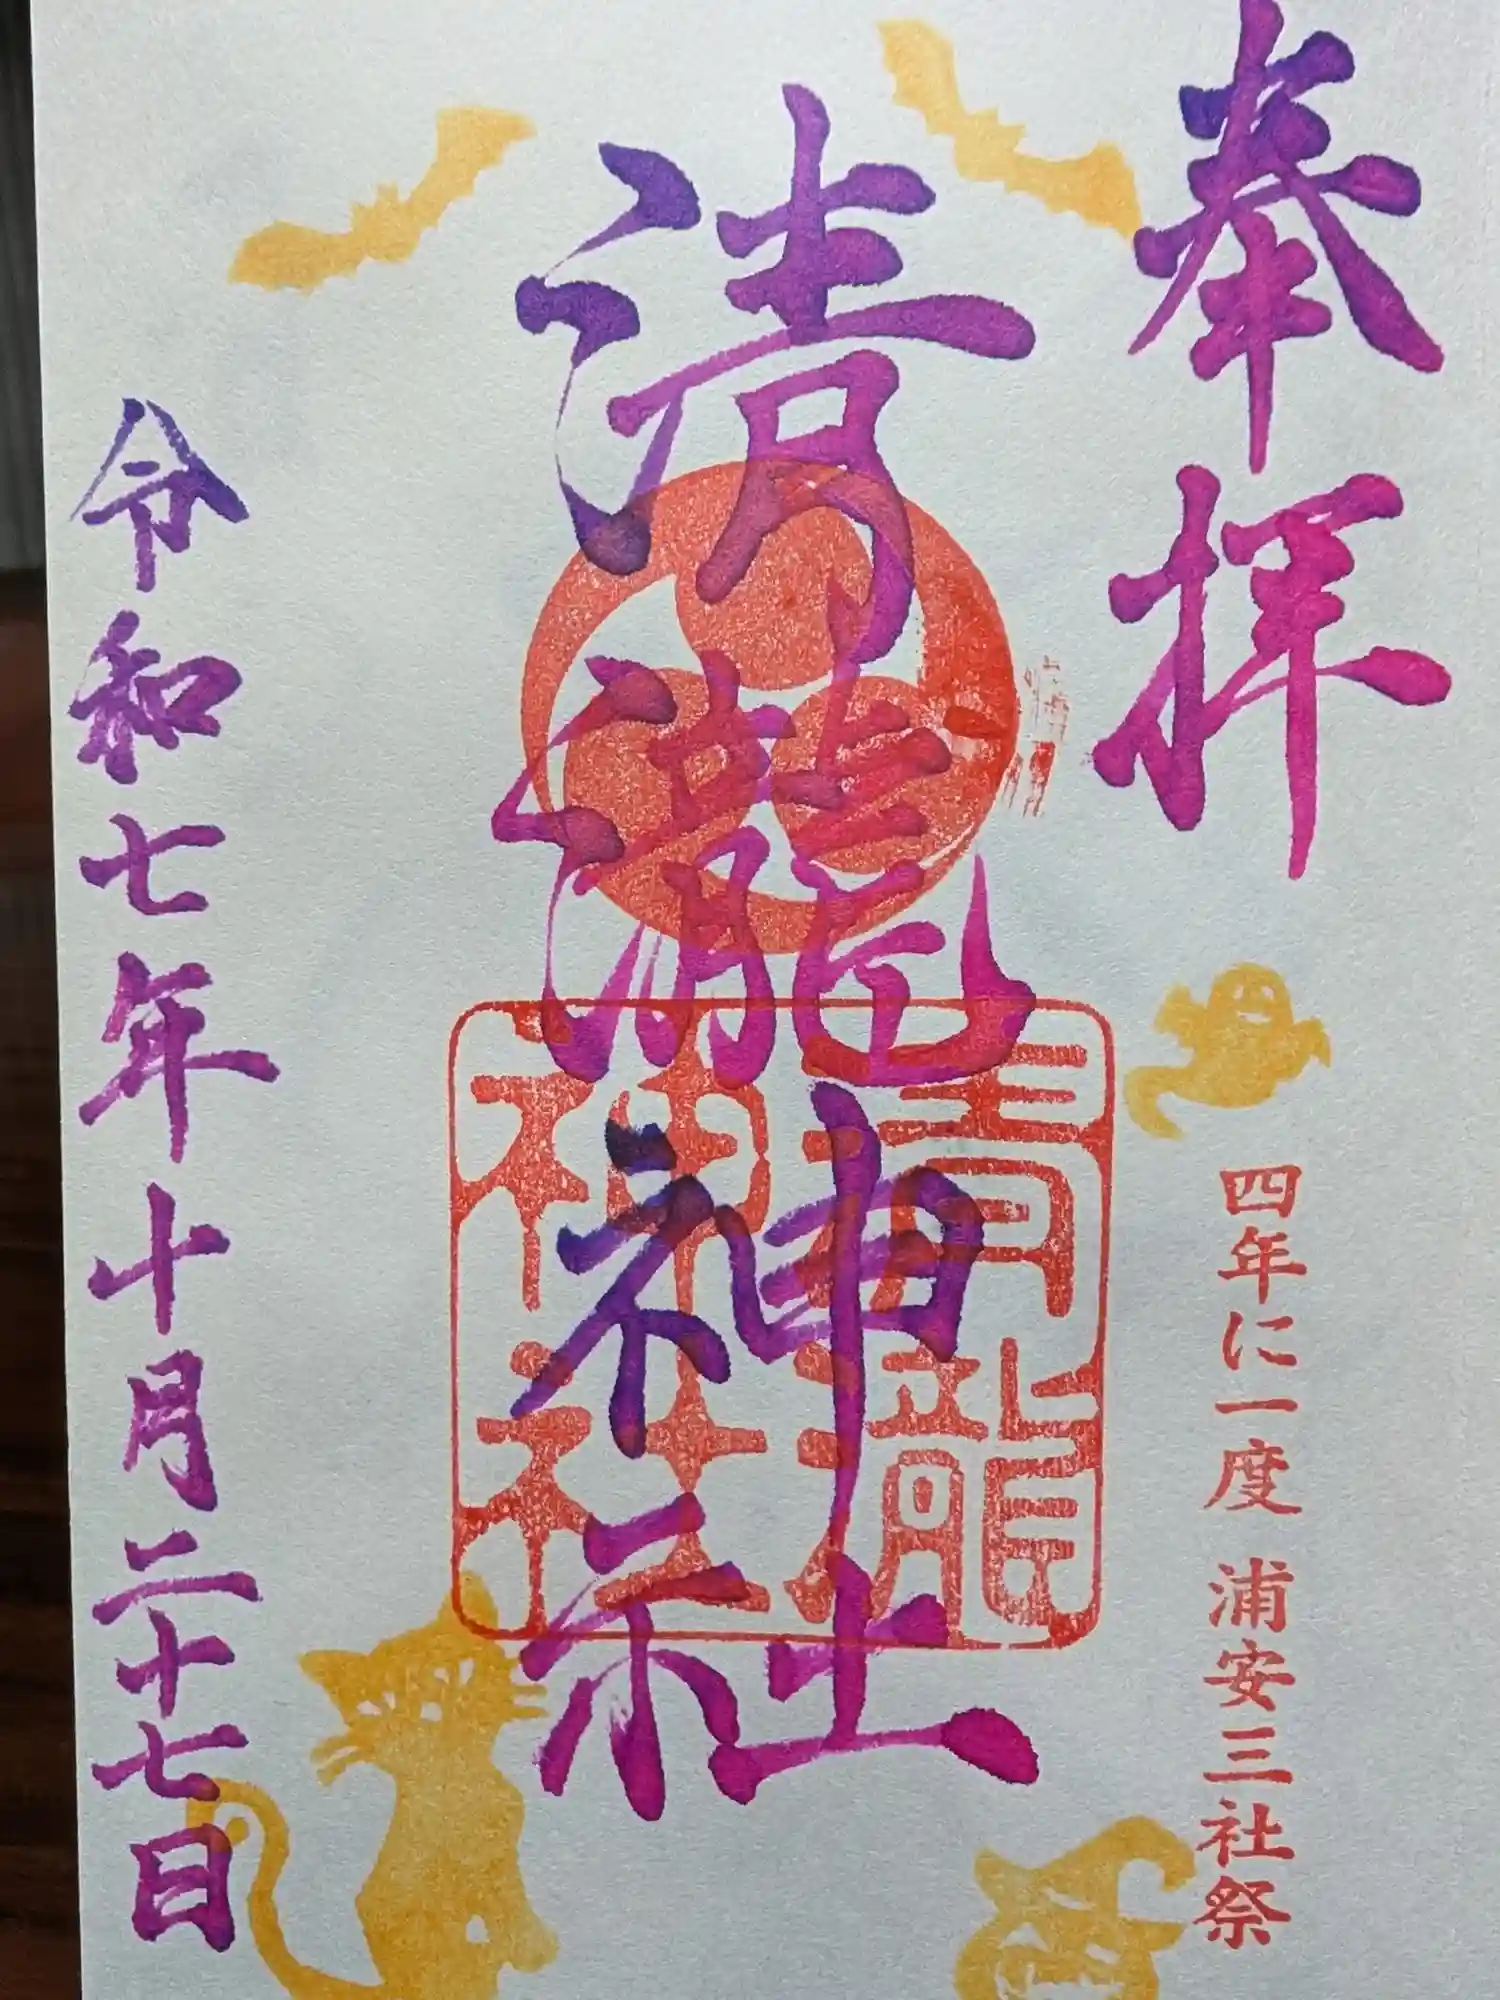 奉拝
四年に一度 浦安三社祭
清瀧神社
清瀧神社
令和七年十月二十七日